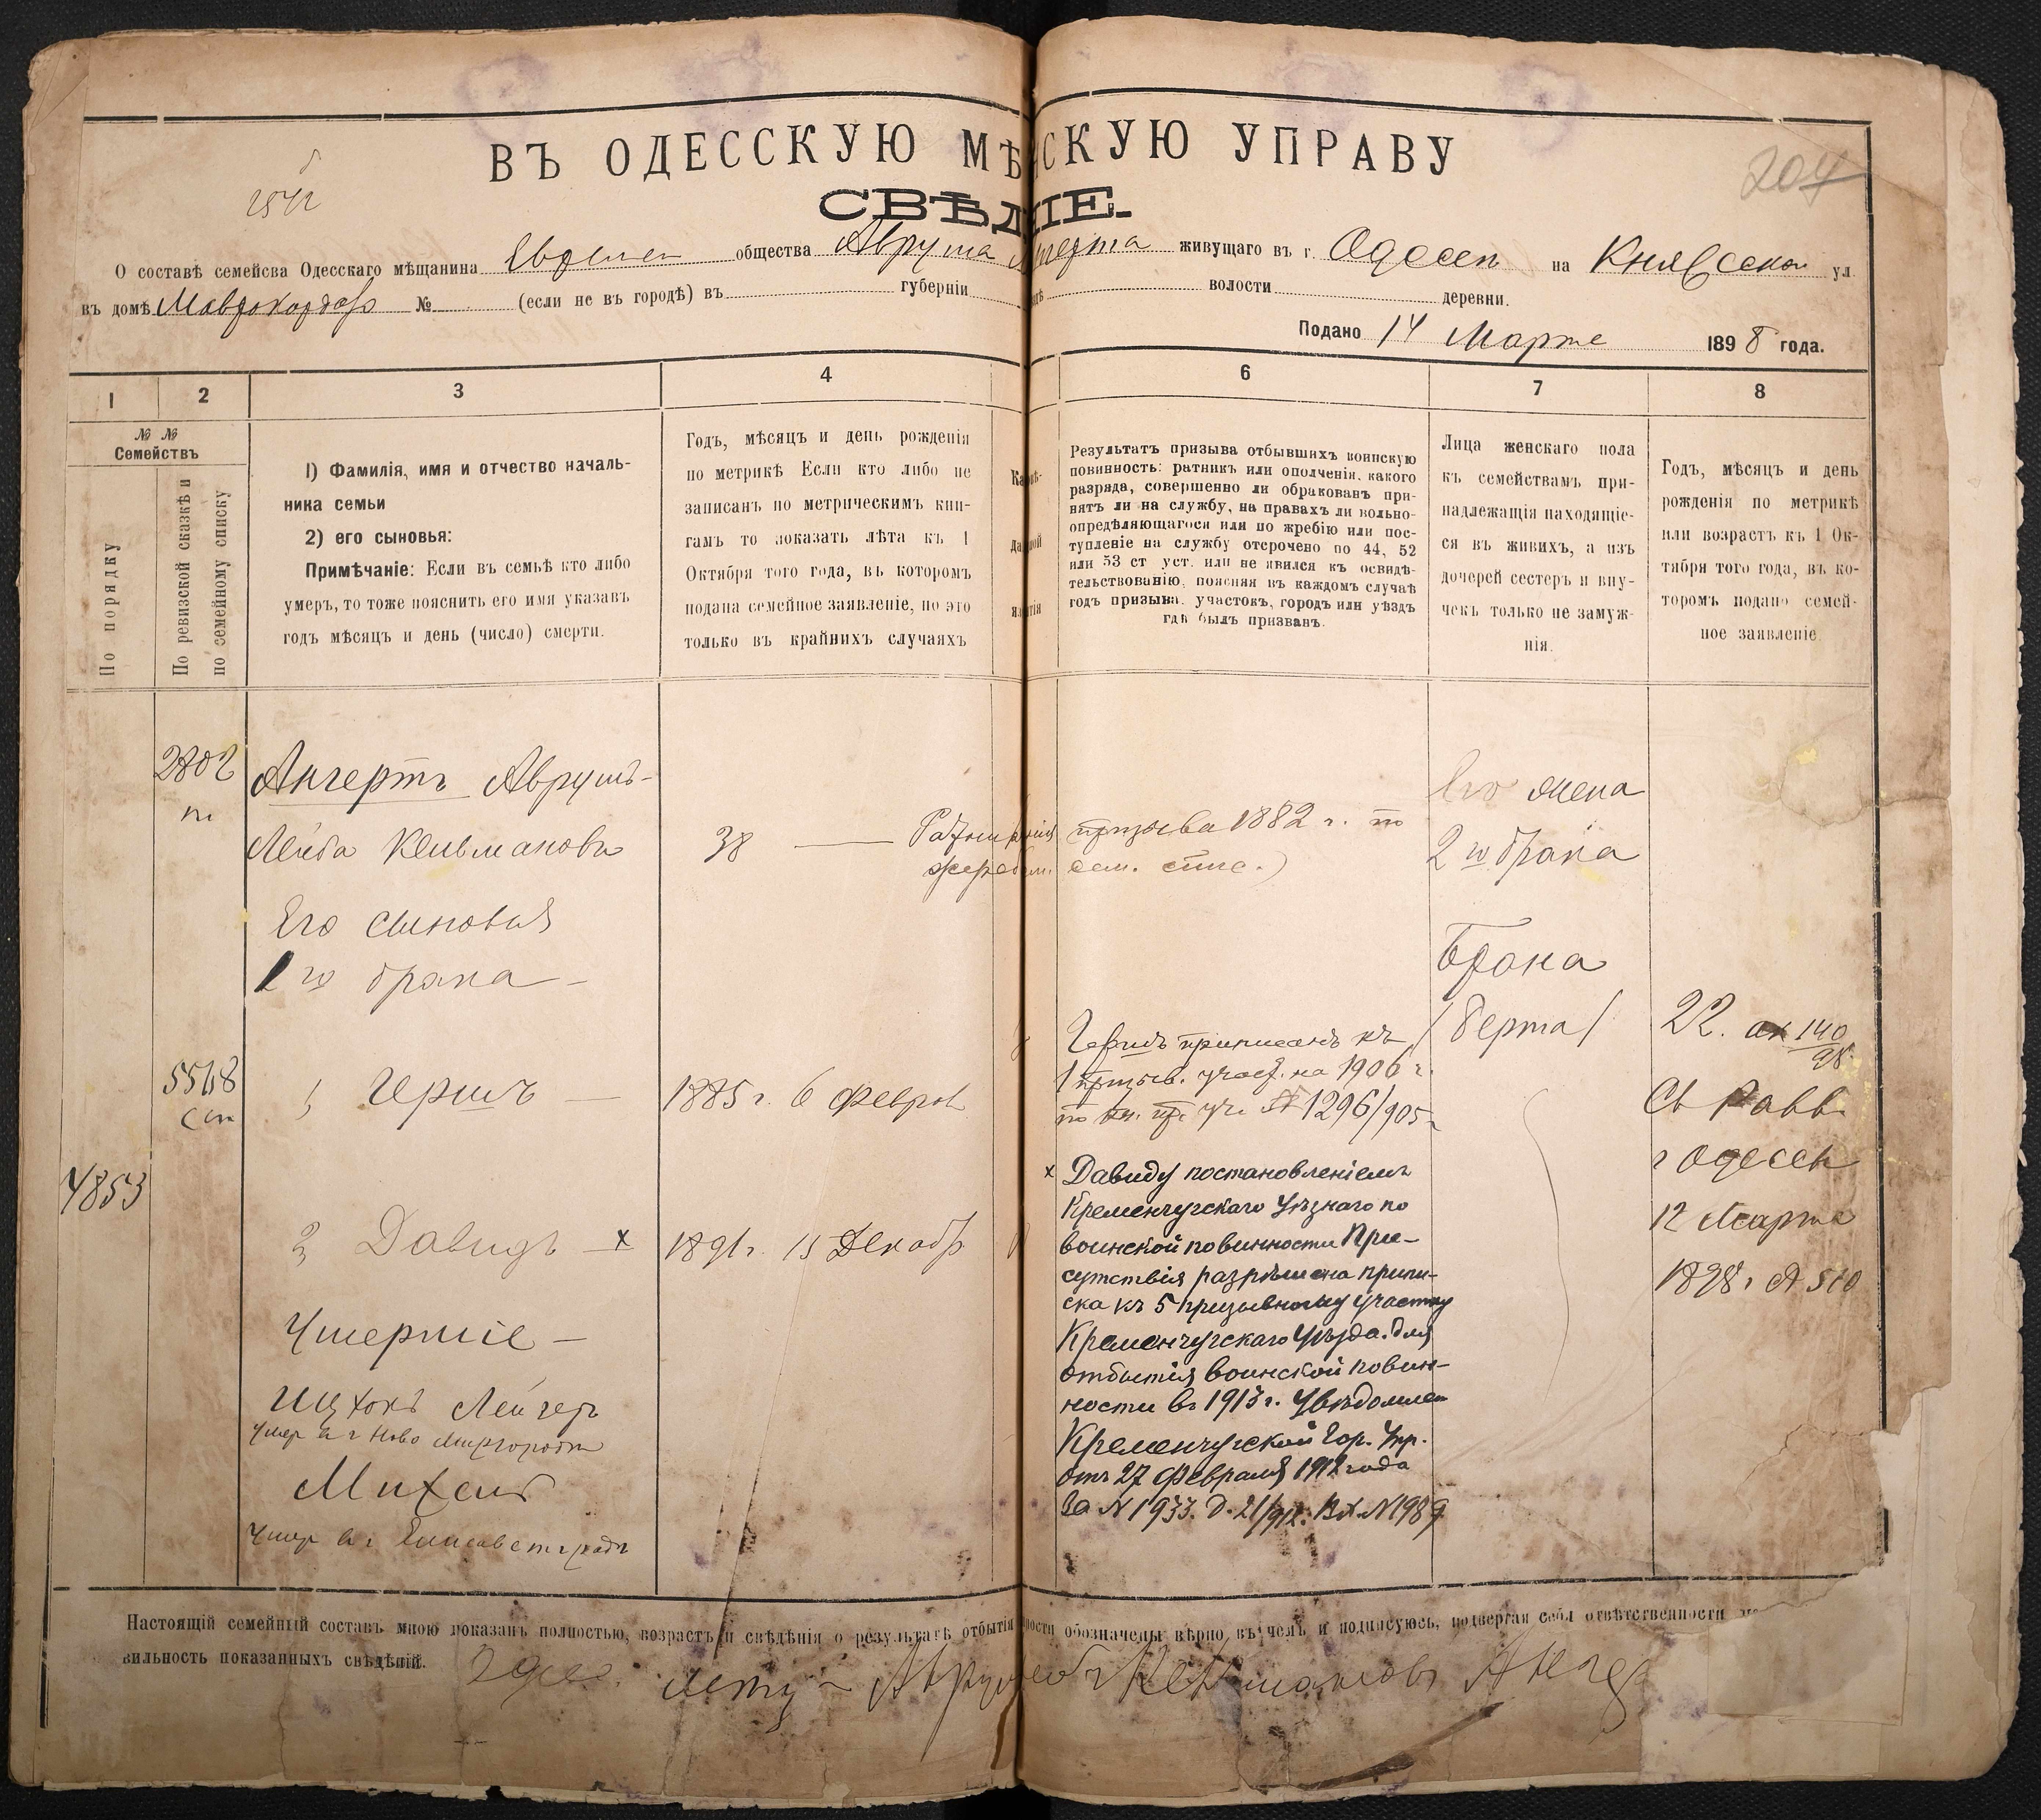 204
ВЪ ОДЕССКУЮ МѢ СКУЮ УПРАВУ
СВѢД ІЕ.
О составѣ семейсва Одесскаго мѣщанина Еврейск общества Авруша Ангерта живущаго въ г. Одессѣ на Княжеской ул.
въ домѣ Маврокордаро № (если не въ городѣ) въ губерніи волости деревни.
Подано 14 Марта 1898 года.
1 2 3 4 6 7 8
№ № Семействъ
По порядку
По ревизской сказкѣ и по семейному списку
1) Фамилія, имя и отчество началь-
ника семьи
2) его сыновья:
Примѣчаніе: Если въ семьѣ кто либо
умеръ, то тоже пояснить его имя указавъ
годъ мѣсяцъ и день (число) смерти.
Годъ, мѣсяцъ и день рожденія
по метрикѣ Если кто либо не
записанъ по метрическимъ кни-
гамъ то показать лѣта къ 1
Октября того года, въ которомъ
подана семейное заявленіе, но это
только въ крайнихъ случаяхъ
Результатъ призыва отбывшихъ воинскую
повинность: ратникъ или ополченія, какого
разряда, совершенно ли обракованъ при-
нятъ ли на службу, на правахъ ли вольно-
опредѣляющагося или по жребію или пос-
тупленіе на службу отсрочено по 44, 52
или 53 ст уст. или не явился къ освидѣ-
тельствованію, поясняя въ каждомъ случаѣ
годъ призыва, участокъ, городъ или уѣздъ
гдѣ былъ призванъ.
Лица женскаго пола
къ семействамъ при-
надлежащія находящіе-
ся въ живихъ, а изъ
дочерей сестеръ и вну-
чекъ только не замуж-
нія.
Годъ, мѣсяцъ и день
рожденія по метрикѣ
или возрастъ къ 1 Ок-
тября того года, въ ко-
торомъ подано семей-
ное заявленіе.
2802
Ангертъ Аврумъ-
Лейба Кельмановъ
38
призыва 1882 г. по
сем. спис.)
Его жена
2 го брака
Его сыновья
1 го брака
Брана
/Берта/
22. 140/98
Св Равв.
г Одессы
12 Марта
1898 г № 510
5548
1 Гершъ
1885 г. 6 Феврал
Гершъ приписанъ къ
1 призыв. участ. на 1906 г.
по уч. № 1296/905
4853
2 Давидъ x
1891 г. 15 Декабр
x Давиду постановленіемъ
Кременчугскаго Уѣзнаго по
воинской повинности При-
сутствія разрѣшена припи-
ска къ 5 призывному участку
Кременчугскаго Уѣзда. для
отбытія воинской повин-
ности въ 1913 г. Увѣдомлен
Кременчугской Гор. Упр.
отъ 27 Февраля 1912 года
за № 1933. Д. 21/912. Вх. № 1989
Умершіе
Ицхокъ Лейзеръ
Умер в г Ново Миргородѣ
Михель
Умер в г Елисаветградѣ
Настоящій семейный составъ мною показанъ полностью, возрастъ и свѣдѣнія о результатѣ отбытія ности обозначены вѣрно въ чемъ и подписуюсь, подвергая себя отвѣтственности
вильность показанныхъ свѣдѣній.